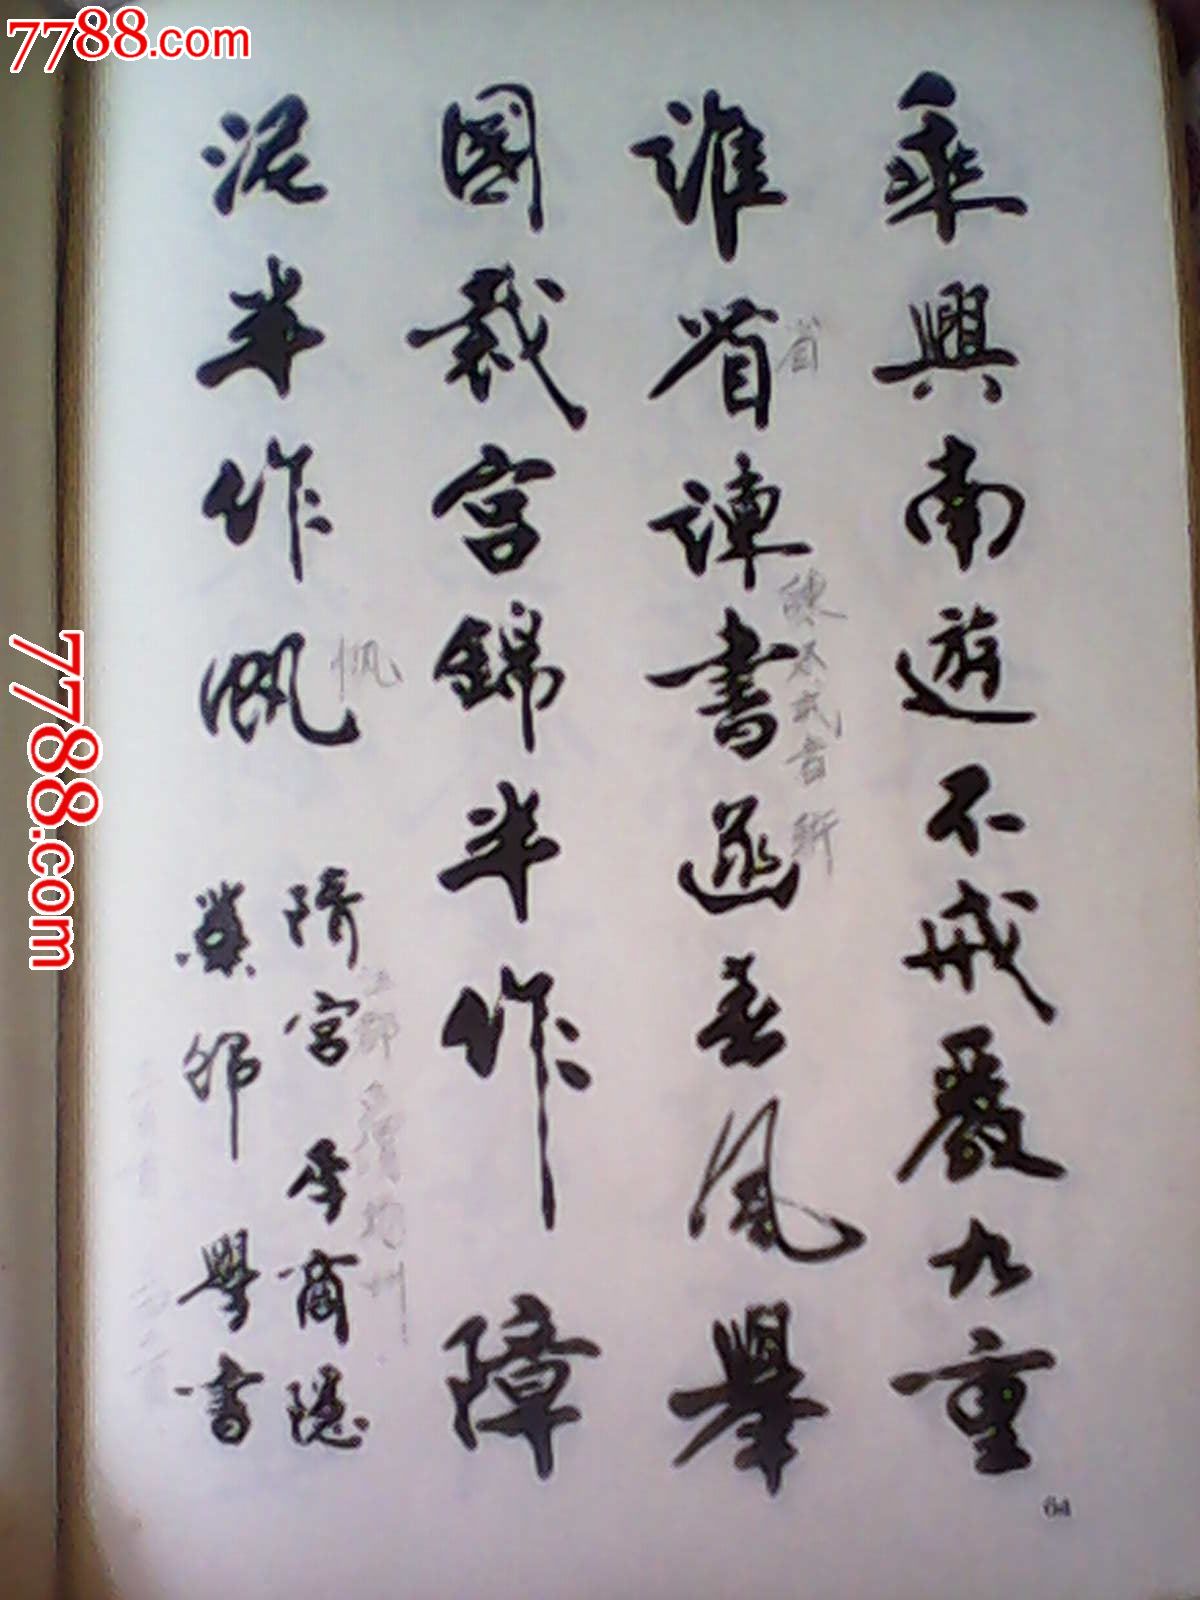 7788.com
乘興南遊不戒嚴九重
誰省諫書函春風舉
國裁宮錦半作障
泥半作帆
隋宮 李商隱
學書
省
帆
7788.com
64